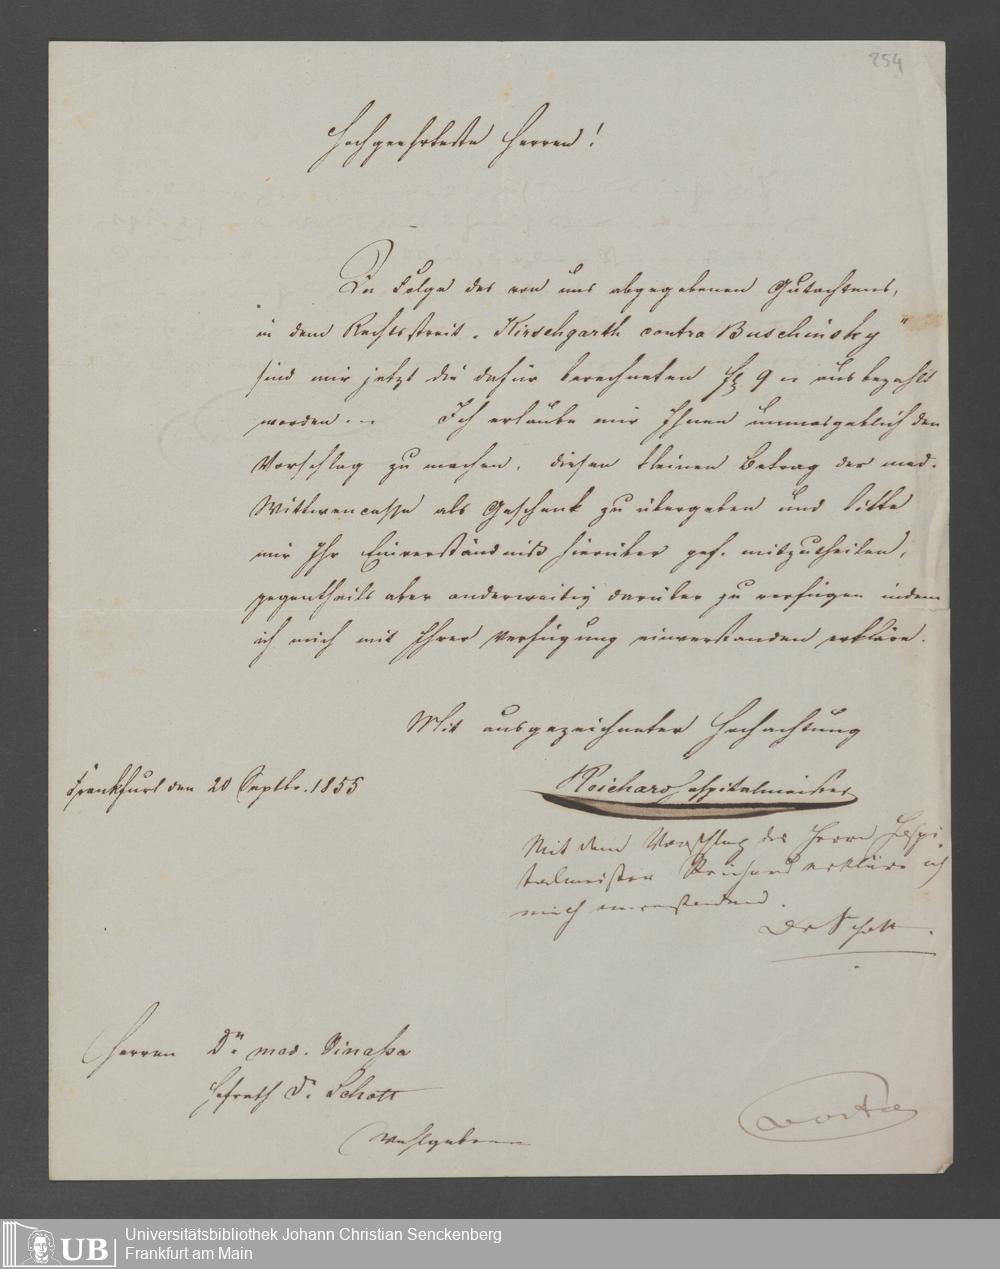 254
Hochgeehrteste Herren!
In Folge des von uns abgegebenen Gutachtens,
in dem Rechtsstreit „Hirschgarth contra Buschinsky“
sind mir jetzt die dafür berechneten fl. 9 ausbezahlt
worden. Ich erlaube mir Ihnen unmasgeblich den
Vorschlag zu machen, diesen kleinen Betrag der med.
Wittwencasse als Geschenk zu übergeben und bitte
mir Ihr Einverständniß hierüber gef. mitzutheilen,
gegentheils aber anderweitig darüber zu verfügen indem
ich mich mit Ihrer Verfügung einverstanden erkläre.
Mit ausgezeichneter Hochachtung
Frankfurt den 20 Septbr. 1855
Reichard Hospitalmeister
Mit dem Vorschlag des Herrn Hospi-
talmeister Reichard erkläre ich
mich einverstanden.
Dr Schott.
Herren Dr. med.
Hofrath Dr. Schott
Wohlgeboren
vorta
UB
Universitätsbibliothek Johann Christian Senckenberg
Frankfurt am Main